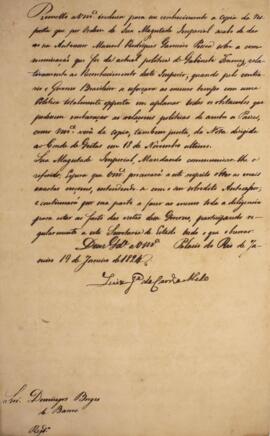 Remetto a Vmce. incluso para seu conhecimento a copia do Des
pacho que por Ordem de Sua Magestade Imperial acabo de di
rigir a Antonio Manoel Rodrigues Gameiro Pessoa sobre a com
municação que fez da actual politica do Gabinete Francez, rela
tivamente ao Reconhecimento deste Imperio, quando pelo contra
rio o Governo Brasileiro se esforçou ao mesmo tempo com uma
Politica totalmente opposta em aplanar todos os obstaculos que
podessem embaraçar as relações politicas de ambos os Paizes,
como Vmce. verá da copia, tambem junta, da Nota dirigida
ao Conde de Gestas em 18 de Novembro ultimo.
Sua Magestade Imperial Mandando communicar-lhe o
referido, espera que Vmce. procurará a este respeito obter as mais
exactas noções, entendendo-se com o seu
e continuará por sua parte a fazer ao mesmo toda a diligencia
para estar ao facto das vistas desse Governo, participando re
gularmente a esta Secretaria de Estado tudo o que observar.
Deos Gde. a Vmce. Palacio do Rio de Ja
neiro 19 de Janeiro de 1826
Luiz Je. de Carvo. e Mello
Snr. Domingos Borges
de Barros